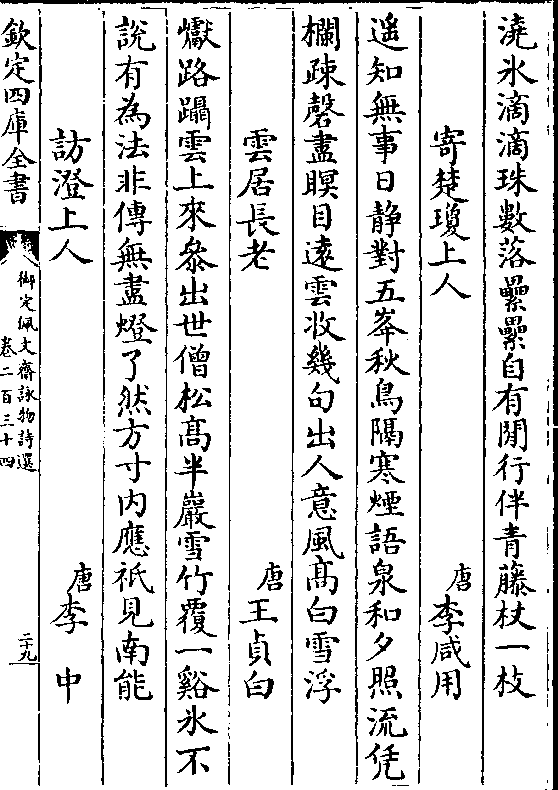 澆氷滴滴珠數落纍纍自有閒行伴青藤杖一枝
寄楚瓊上人 唐李咸用
遥知無事日静對五峯秋鳥隔寒煙語泉和夕照流凭
欄疎磬盡瞑目遠雲收幾句出人意風髙白雪浮
雲居長老 唐王貞白
巘路躡雲上來叅出世僧松髙半巖雪竹覆一谿氷不
說有為法非傳無盡燈了然方寸内應祇見南能
訪澄上人 唐李中
欽定四庫全書
御定佩文齋詠物詩選
卷二百三十四
二十九